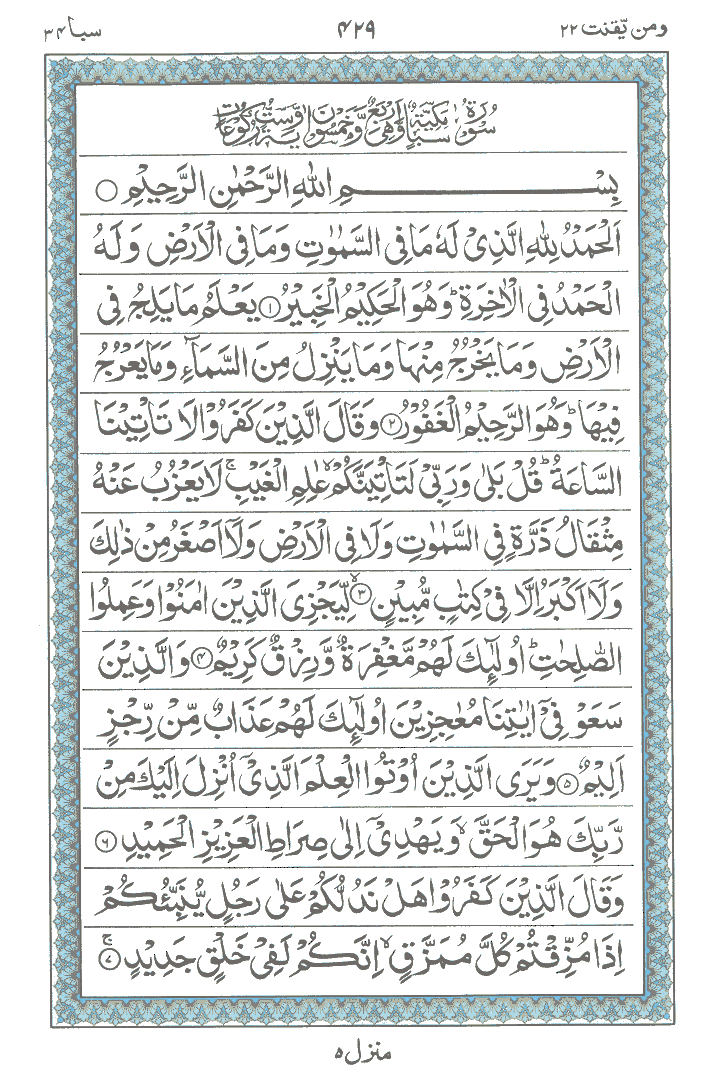 ومن يّقنت ٢٢
٤٢٩
سبا ٣٤
سُوْرَةُ سَبَاٍ مَكِّيَّةٌ وَّهِيَ اَرْبَعٌ وَّخَمْسُوْنَ اٰيَةً وَّسِتُّ رُكُوْعَاتٍ
بِسْمِ اللّٰهِ الرَّحْمٰنِ الرَّحِيْمِ ○
اَلْحَمْدُ لِلّٰهِ الَّذِيْ لَهٗ مَا فِي السَّمٰوٰتِ وَمَا فِي الْاَرْضِ وَلَهُ
الْحَمْدُ فِي الْاٰخِرَةِ ؕ وَهُوَ الْحَكِيْمُ الْخَبِيْرُ ۝١ يَعْلَمُ مَا يَلِجُ فِي
الْاَرْضِ وَمَا يَخْرُجُ مِنْهَا وَمَا يَنْزِلُ مِنَ السَّمَآءِ وَمَا يَعْرُجُ
فِيْهَا ؕ وَهُوَ الرَّحِيْمُ الْغَفُوْرُ ۝٢ وَقَالَ الَّذِيْنَ كَفَرُوْا لَا تَاْتِيْنَا
السَّاعَةُ ؕ قُلْ بَلٰى وَرَبِّيْ لَتَاْتِيَنَّكُمْ ۙ عٰلِمِ الْغَيْبِ ۚ لَا يَعْزُبُ عَنْهُ
مِثْقَالُ ذَرَّةٍ فِي السَّمٰوٰتِ وَلَا فِي الْاَرْضِ وَلَاۤ اَصْغَرُ مِنْ ذٰلِكَ
وَلَاۤ اَكْبَرُ اِلَّا فِيْ كِتٰبٍ مُّبِيْنٍ ۝٣ۙ لِّيَجْزِيَ الَّذِيْنَ اٰمَنُوْا وَعَمِلُوا
الصّٰلِحٰتِ ؕ اُولٰٓئِكَ لَهُمْ مَّغْفِرَةٌ وَّرِزْقٌ كَرِيْمٌ ۝٤ وَالَّذِيْنَ
سَعَوْ فِيْۤ اٰيٰتِنَا مُعٰجِزِيْنَ اُولٰٓئِكَ لَهُمْ عَذَابٌ مِّنْ رِّجْزٍ
اَلِيْمٌ ۝٥ وَيَرَى الَّذِيْنَ اُوْتُوا الْعِلْمَ الَّذِيْۤ اُنْزِلَ اِلَيْكَ مِنْ
رَّبِّكَ هُوَ الْحَقَّ ۙ وَيَهْدِيْۤ اِلٰى صِرَاطِ الْعَزِيْزِ الْحَمِيْدِ ۝٦
وَقَالَ الَّذِيْنَ كَفَرُوْا هَلْ نَدُلُّكُمْ عَلٰى رَجُلٍ يُّنَبِّئُكُمْ
اِذَا مُزِّقْتُمْ كُلَّ مُمَزَّقٍ ۙ اِنَّكُمْ لَفِيْ خَلْقٍ جَدِيْدٍ ۝٧ۚ
منزل ٥